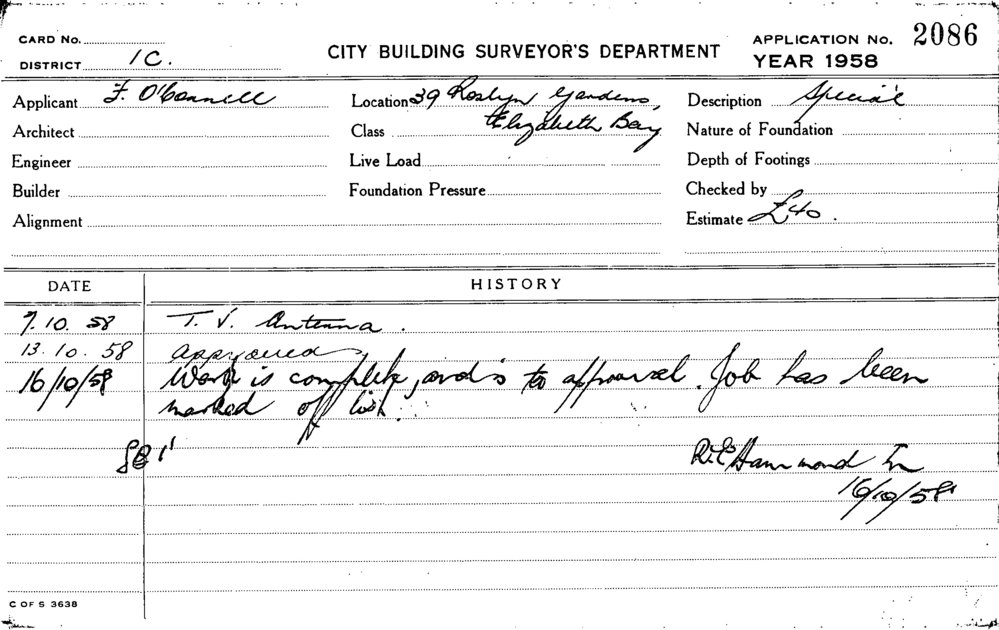 CARD No.
DISTRICT 1C.
CITY BUILDING SURVEYOR'S DEPARTMENT
APPLICATION No. 2086
YEAR 1958
Applicant F. O'Connell
Location 39 Roslyn Gardens,
Elizabeth Bay
Description Special
Architect
Class
Nature of Foundation
Engineer
Live Load
Depth of Footings
Builder
Foundation Pressure
Checked by
Alignment
Estimate £40.
DATE HISTORY
7.10.58 T. V. Antenna.
13.10.58 approved
16/10/58 Work is complete, and is to approval. Job has been
marked off list.
R.E. Hammond
16/10/58
C OF S 3638